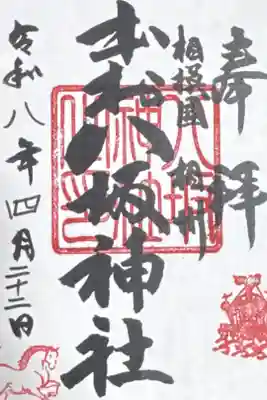 奉拝
相模國 相州
八坂神社
令和八年四月二十二日